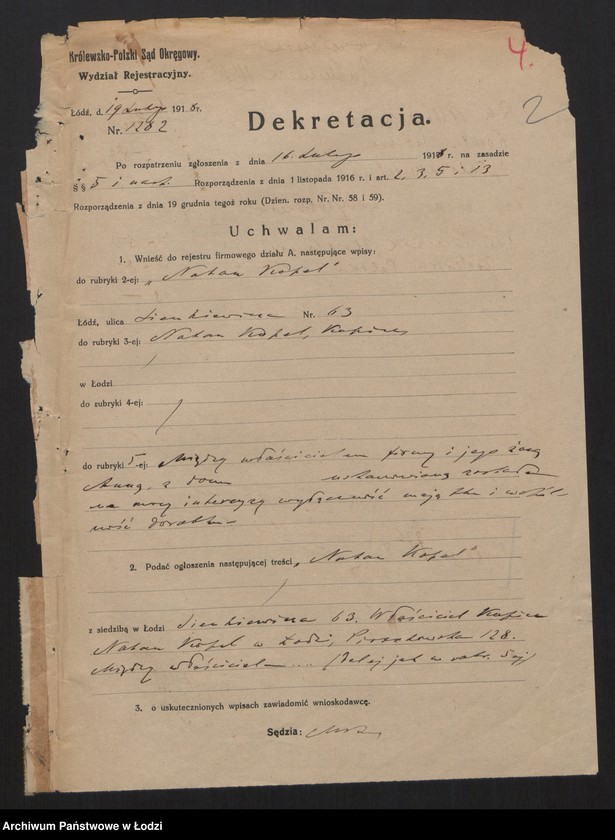 4.
2
Królewsko-Polski Sąd Okręgowy.
Wydział Rejestracyjny.
Łódź, d. 19 Lutego 1918 r.
Nr. 1282
Dekretacja.
Po rozpatrzeniu zgłoszenia z dnia 16 Lutego 1918 r. na zasadzie
§ § 5 i nast. Rozporządzenia z dnia 1 listopada 1916 r. i art. 2, 3, 5 i 13
Rozporządzenia z dnia 19 grudnia tegoż roku (Dzien. rozp. Nr. Nr. 58 i 59).
Uchwalam:
1. Wnieść do rejestru firmowego działu A. następujące wpisy:
do rubryki 2-ej: „Natan Kopel"
Łódź, ulica Sienkiewicza Nr. 63
do rubryki 3-ej: Natan Kopel, Kupiec
w Łodzi
do rubryki 4-ej:
do rubryki 5-ej: Między właścicielem firmy i jego żoną
Anną, z domu ustanowioną została
na mocy intercyzy wyłączność majątku i wspól-
ność dorobku
2. Podać ogłoszenia następującej treści „Natan Kopel"
z siedzibą w Łodzi Sienkiewicza 63. Właściciel Kupiec
Natan Kopel w Łodzi, Piotrkowska 128.
Między właścicielem ... (dalej jak w rubr. 5ej)
3. o uskutecznionych wpisach zawiadomić wnioskodawcę.
Sędzia:
Archiwum Państwowe w Łodzi